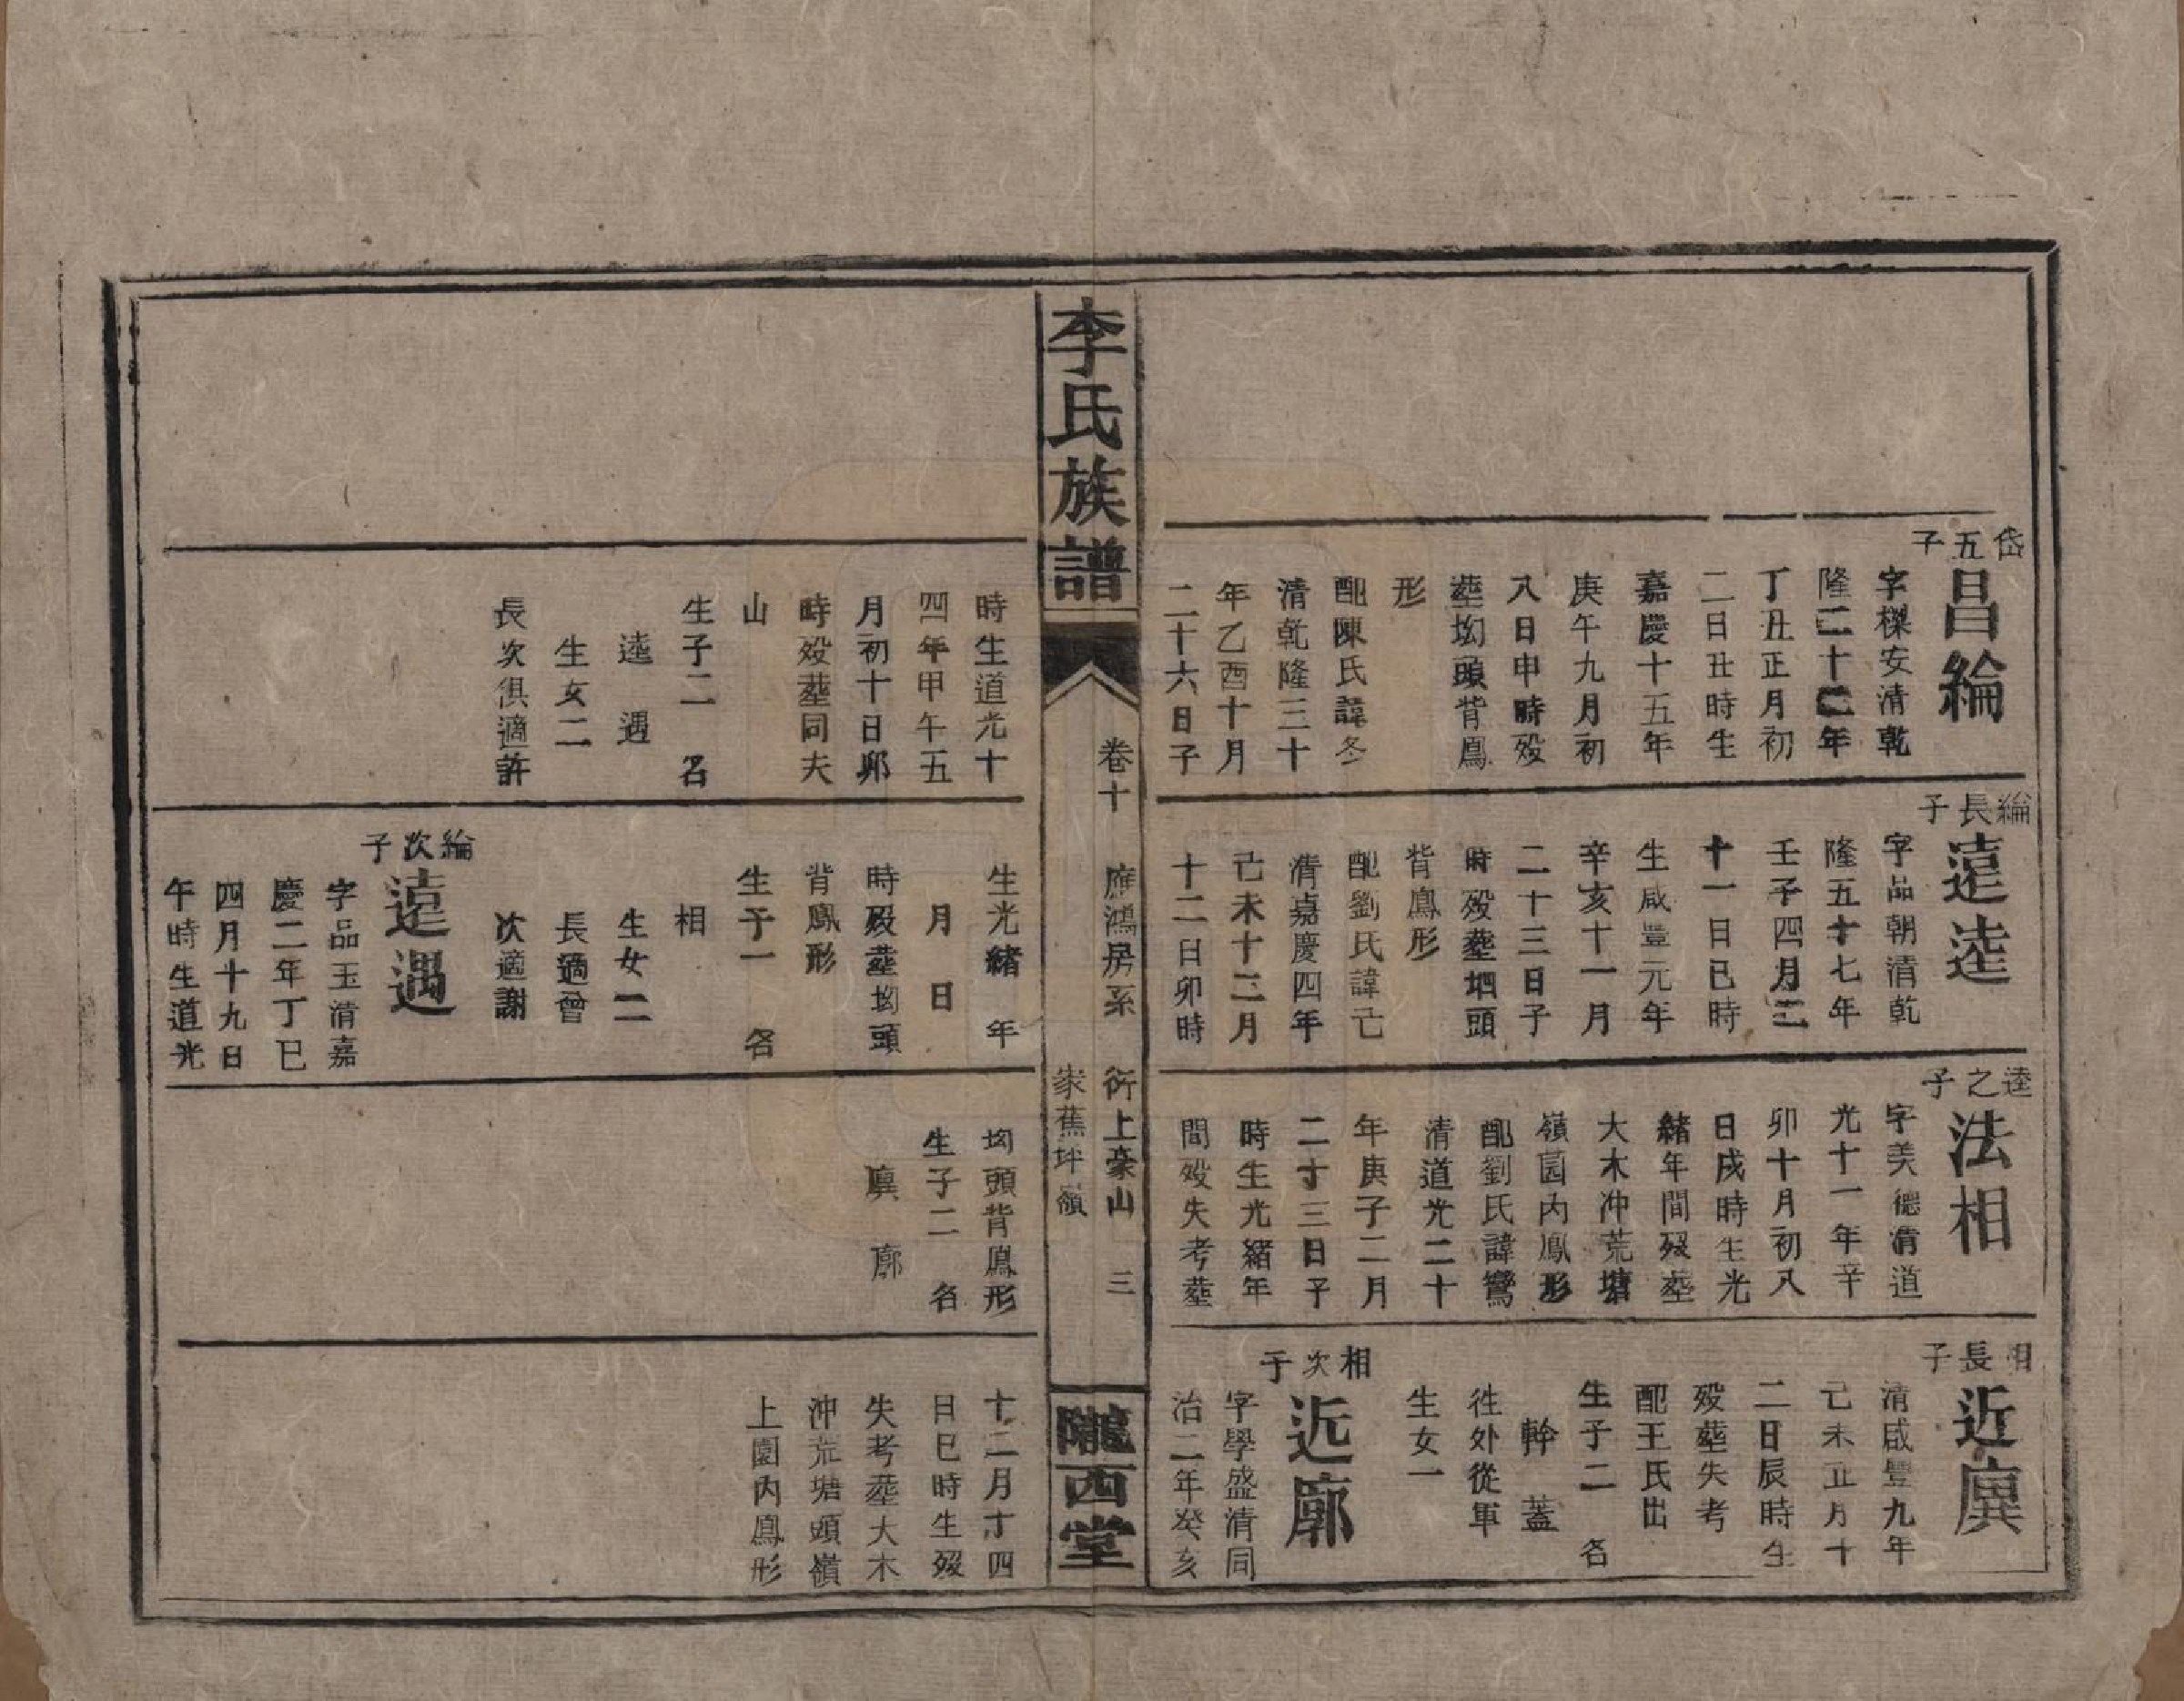 岱五子
昌綸
字樑安清乾
隆二十二年
丁丑正月初
二日丑時生
嘉慶十五年
庚午九月初
八日申時殁
塟坳頭背鳳
形
配陳氏諱冬
清乾隆三十
年乙酉十月
二十六日子
綸長子
遠逵
字品朝清乾
隆五十七年
壬子四月二
十一日巳時
生咸豐元年
辛亥十一月
二十三日子
時殁塟坳頭
背鳳形
配劉氏諱己
清嘉慶四年
己未十二月
十二日卯時
逵之子
法相
字美德清道
光十一年辛
卯十月初八
日戌時生光
緒年間殁塟
大木冲荒塘
嶺園内鳳形
配劉氏諱鸞
清道光二十
年庚子二月
二十三日子
時生光緒年
間殁失考塟
相長子
近廙
清咸豐九年
己未正月十
二日辰時生
殁塟失考
配王氏出
生子二 名
幹 蓋
徃外從軍
生女一
相次子
近廓
字學盛清同
治二年癸亥
李氏族譜
卷十 應鴻房系 衍上豪山 三
家蕉坪嶺
隴西堂
時生道光十
四年甲午五
月初十日卯
時殁塟同夫
山
生子二 名
逵 遇
生女二
長次俱適許
生光緒 年
月 日
時殁塟坳頭
背鳳形
生子一 名
相
生女二
長適曾
次適謝
綸次子
遠遇
字品玉清嘉
慶二年丁巳
四月十九日
午時生道光
坳頭背鳳形
生子二 名
廙 廓
十二月十四
日巳時生殁
失考塟大木
沖荒塘頭嶺
上園内鳳形